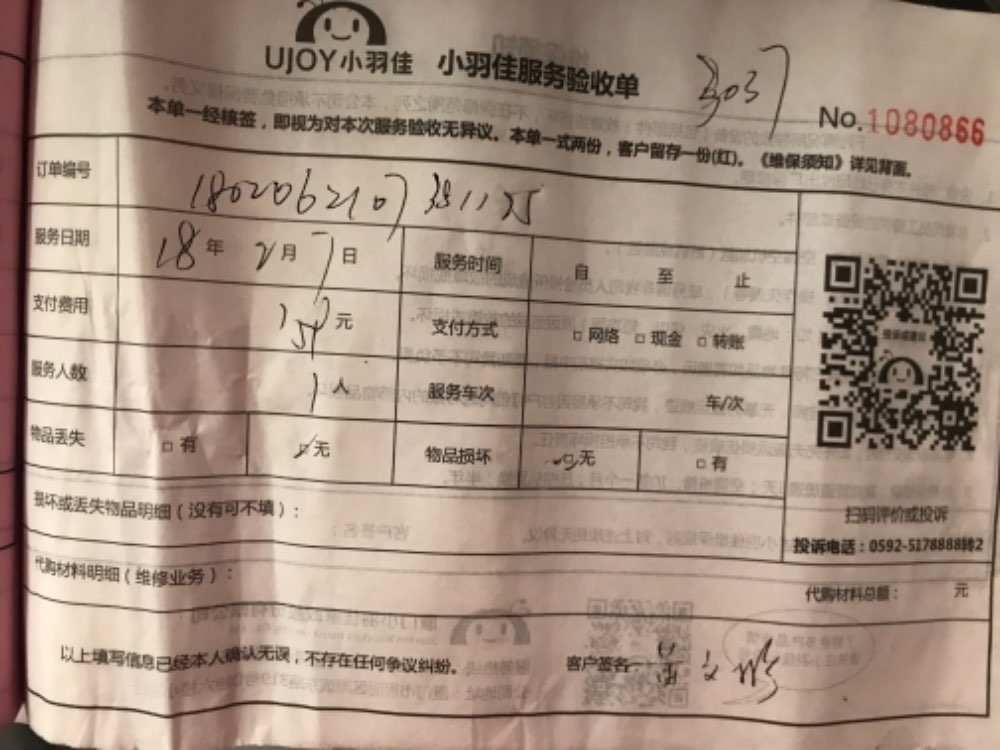 UJOY小羽佳 小羽佳服务验收单
No.1080866
本单一经核签,即视为对本次服务验收无异议。本单一式两份,客户留存一份(红)。《维保须知》详见背面。
订单编号 1802062107
服务日期 18年2月7日 服务时间 自 至 止
支付费用 元 支付方式 □网络 □现金 □转账
服务人数 1人 服务车次 车/次
物品丢失 □有 ☑无 物品损坏 ☑无 □有
损坏或丢失物品明细(没有可不填):
扫码评价或投诉
投诉电话:0592-5178888转2
代购材料明细(维修业务): 代购材料总额: 元
以上填写信息已经本人确认无误,不存在任何争议纠纷。 客户签名